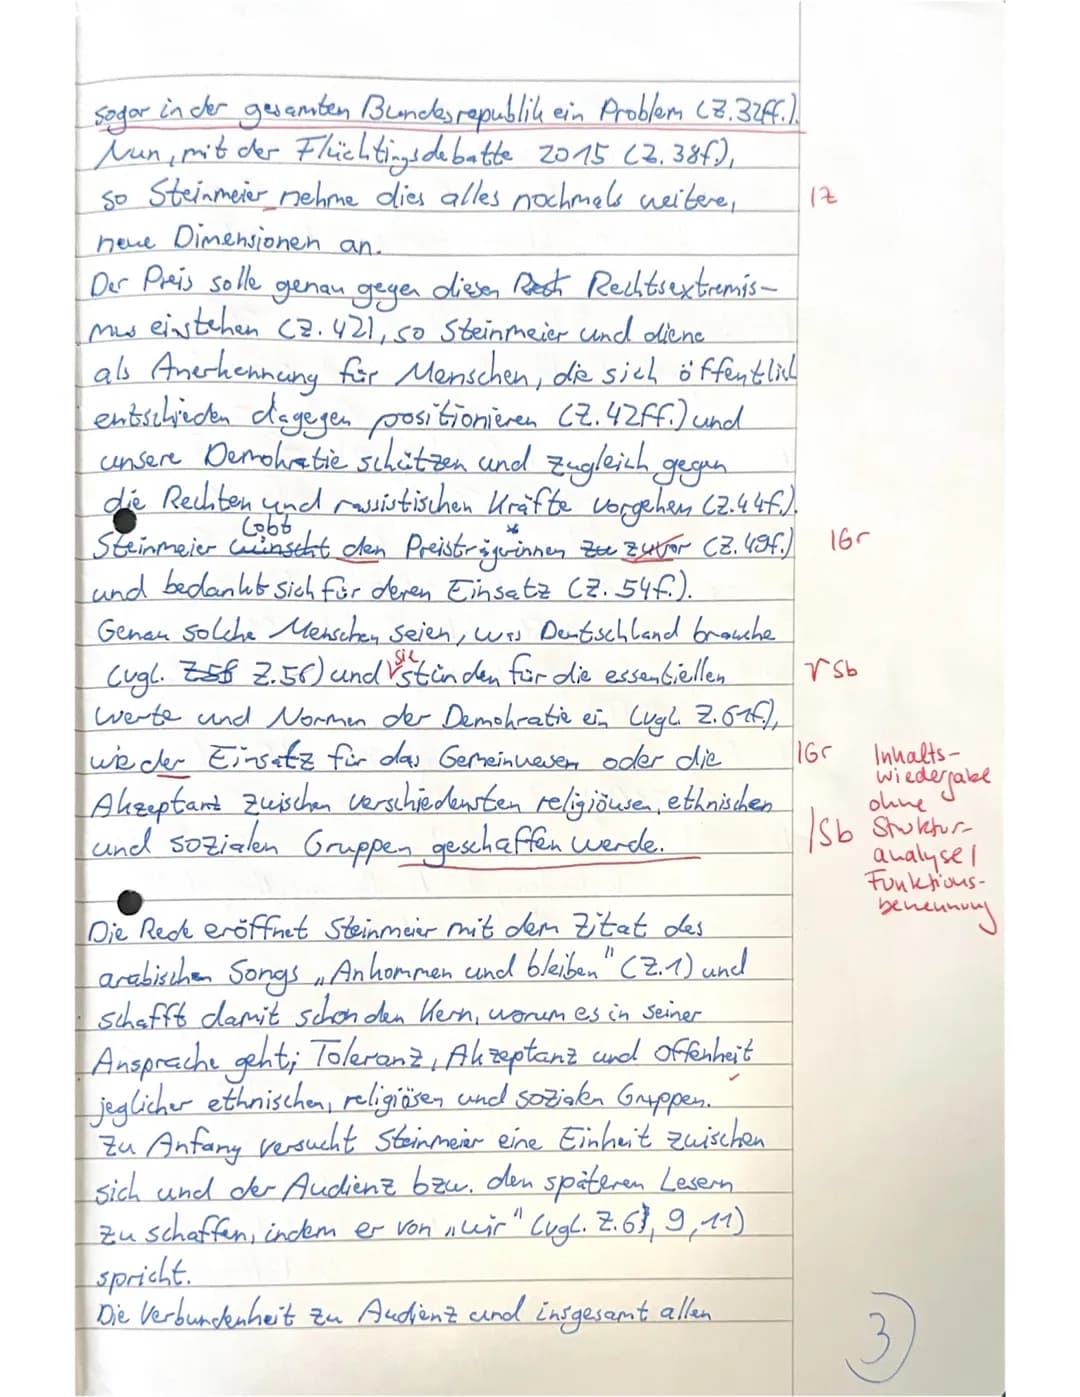 sogar in der gesamten Bundesrepublik ein Problem (Z.32ff.).
Nun, mit der Flüchtingsdebatte 2015 (Z.38f.),
so Steinmeier nehme dies alles nochmals weitere, 1Z
neue Dimensionen an.
Der Preis solle genau gegen diesen Rech Rechtsextremis-
mus einstehen (Z.42), so Steinmeier und diene
als Anerkennung für Menschen, die sich öffentlich
entschieden dagegen positionieren (Z.42ff.) und
unsere Demokratie schützen und zugleich gegen
die Rechten und rassistischen Kräfte vorgehen (Z.44f.).
Lobt
Steinmeier wünscht den Preisträgerinnen zu zuvor (Z.49f.) 1Gr
und bedankt sich für deren Einsatz (Z.54f.).
Genau solche Menschen seien, was Deutschland brauche
sie
(vgl. Z58 Z.56) und stünden für die essentiellen √Sb
Werte und Normen der Demokratie ein (vgl. Z.61f.),
wie der Einsatz für das Gemeinwesen oder die 1Gr
Akzeptant zwischen verschiedensten religiösen, ethnischen
und sozialen Gruppen geschaffen werde. /Sb
Inhalts-
wiedergabe
ohne
Struktur-
analyse /
Funktions-
benennung
Die Rede eröffnet Steinmeier mit dem Zitat des
arabischen Songs „Ankommen und bleiben" (Z.1) und
schafft damit schon den Kern, worum es in seiner
Ansprache geht; Toleranz, Akzeptanz und Offenheit
jeglicher ethnischen, religiösen und sozialen Gruppen.
Zu Anfang versucht Steinmeier eine Einheit zwischen
sich und der Audienz bzw. den späteren Lesern
zu schaffen, indem er von „wir" (vgl. Z.6, 9, 11)
spricht.
Die Verbundenheit zu Audienz und insgesamt allen
3